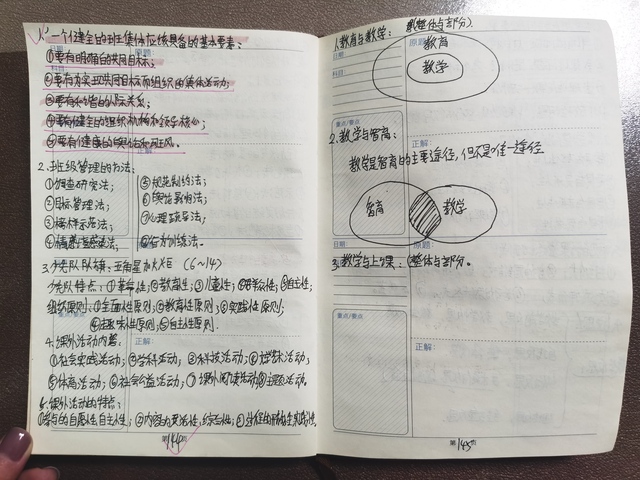 1. 一个健全的班集体应该具备的基本要素：
①要有明确的共同目标；
②要有为实现共同目标而组织的集体活动；
③要有和谐的人际关系；
④要有健全的组织机构和领导核心；
⑤要有健康的舆论和班风。
2. 班级管理的方法：
①调查研究法； ⑤规范制约法；
②目标管理法； ⑥舆论影响法；
③榜样示范法； ⑦心理疏导法；
④情境感染法； ⑧行为训练法。
3. 少先队队旗：五角星加火炬（6~14）
少先队特点：①革命性；②教育性；③儿童性；④群众性；⑤自主性
组织原则：①全面性原则；②教育性原则；③实践性原则；
④趣味性原则；⑤自主性原则。
4. 课外活动内容：
①社会实践活动；②学科活动；③科技活动；④文学活动；
⑤体育活动；⑥社会公益活动；⑦课外阅读活动；⑧主题活动。
5. 课外活动的特点：
①参与的自愿性，自主性；②内容的灵活性，综合性；③过程的实践性。
第144页
1. 教育与教学：整体与部分。
教育
教学
2. 教学与智育：
教学是智育的主要途径，但不是唯一途径。
智育
教学
3. 教学与上课：整体与部分。
日期
科目
原题
重点/要点
正解：
日期：
原题：
重点/要点
正解：
第145页